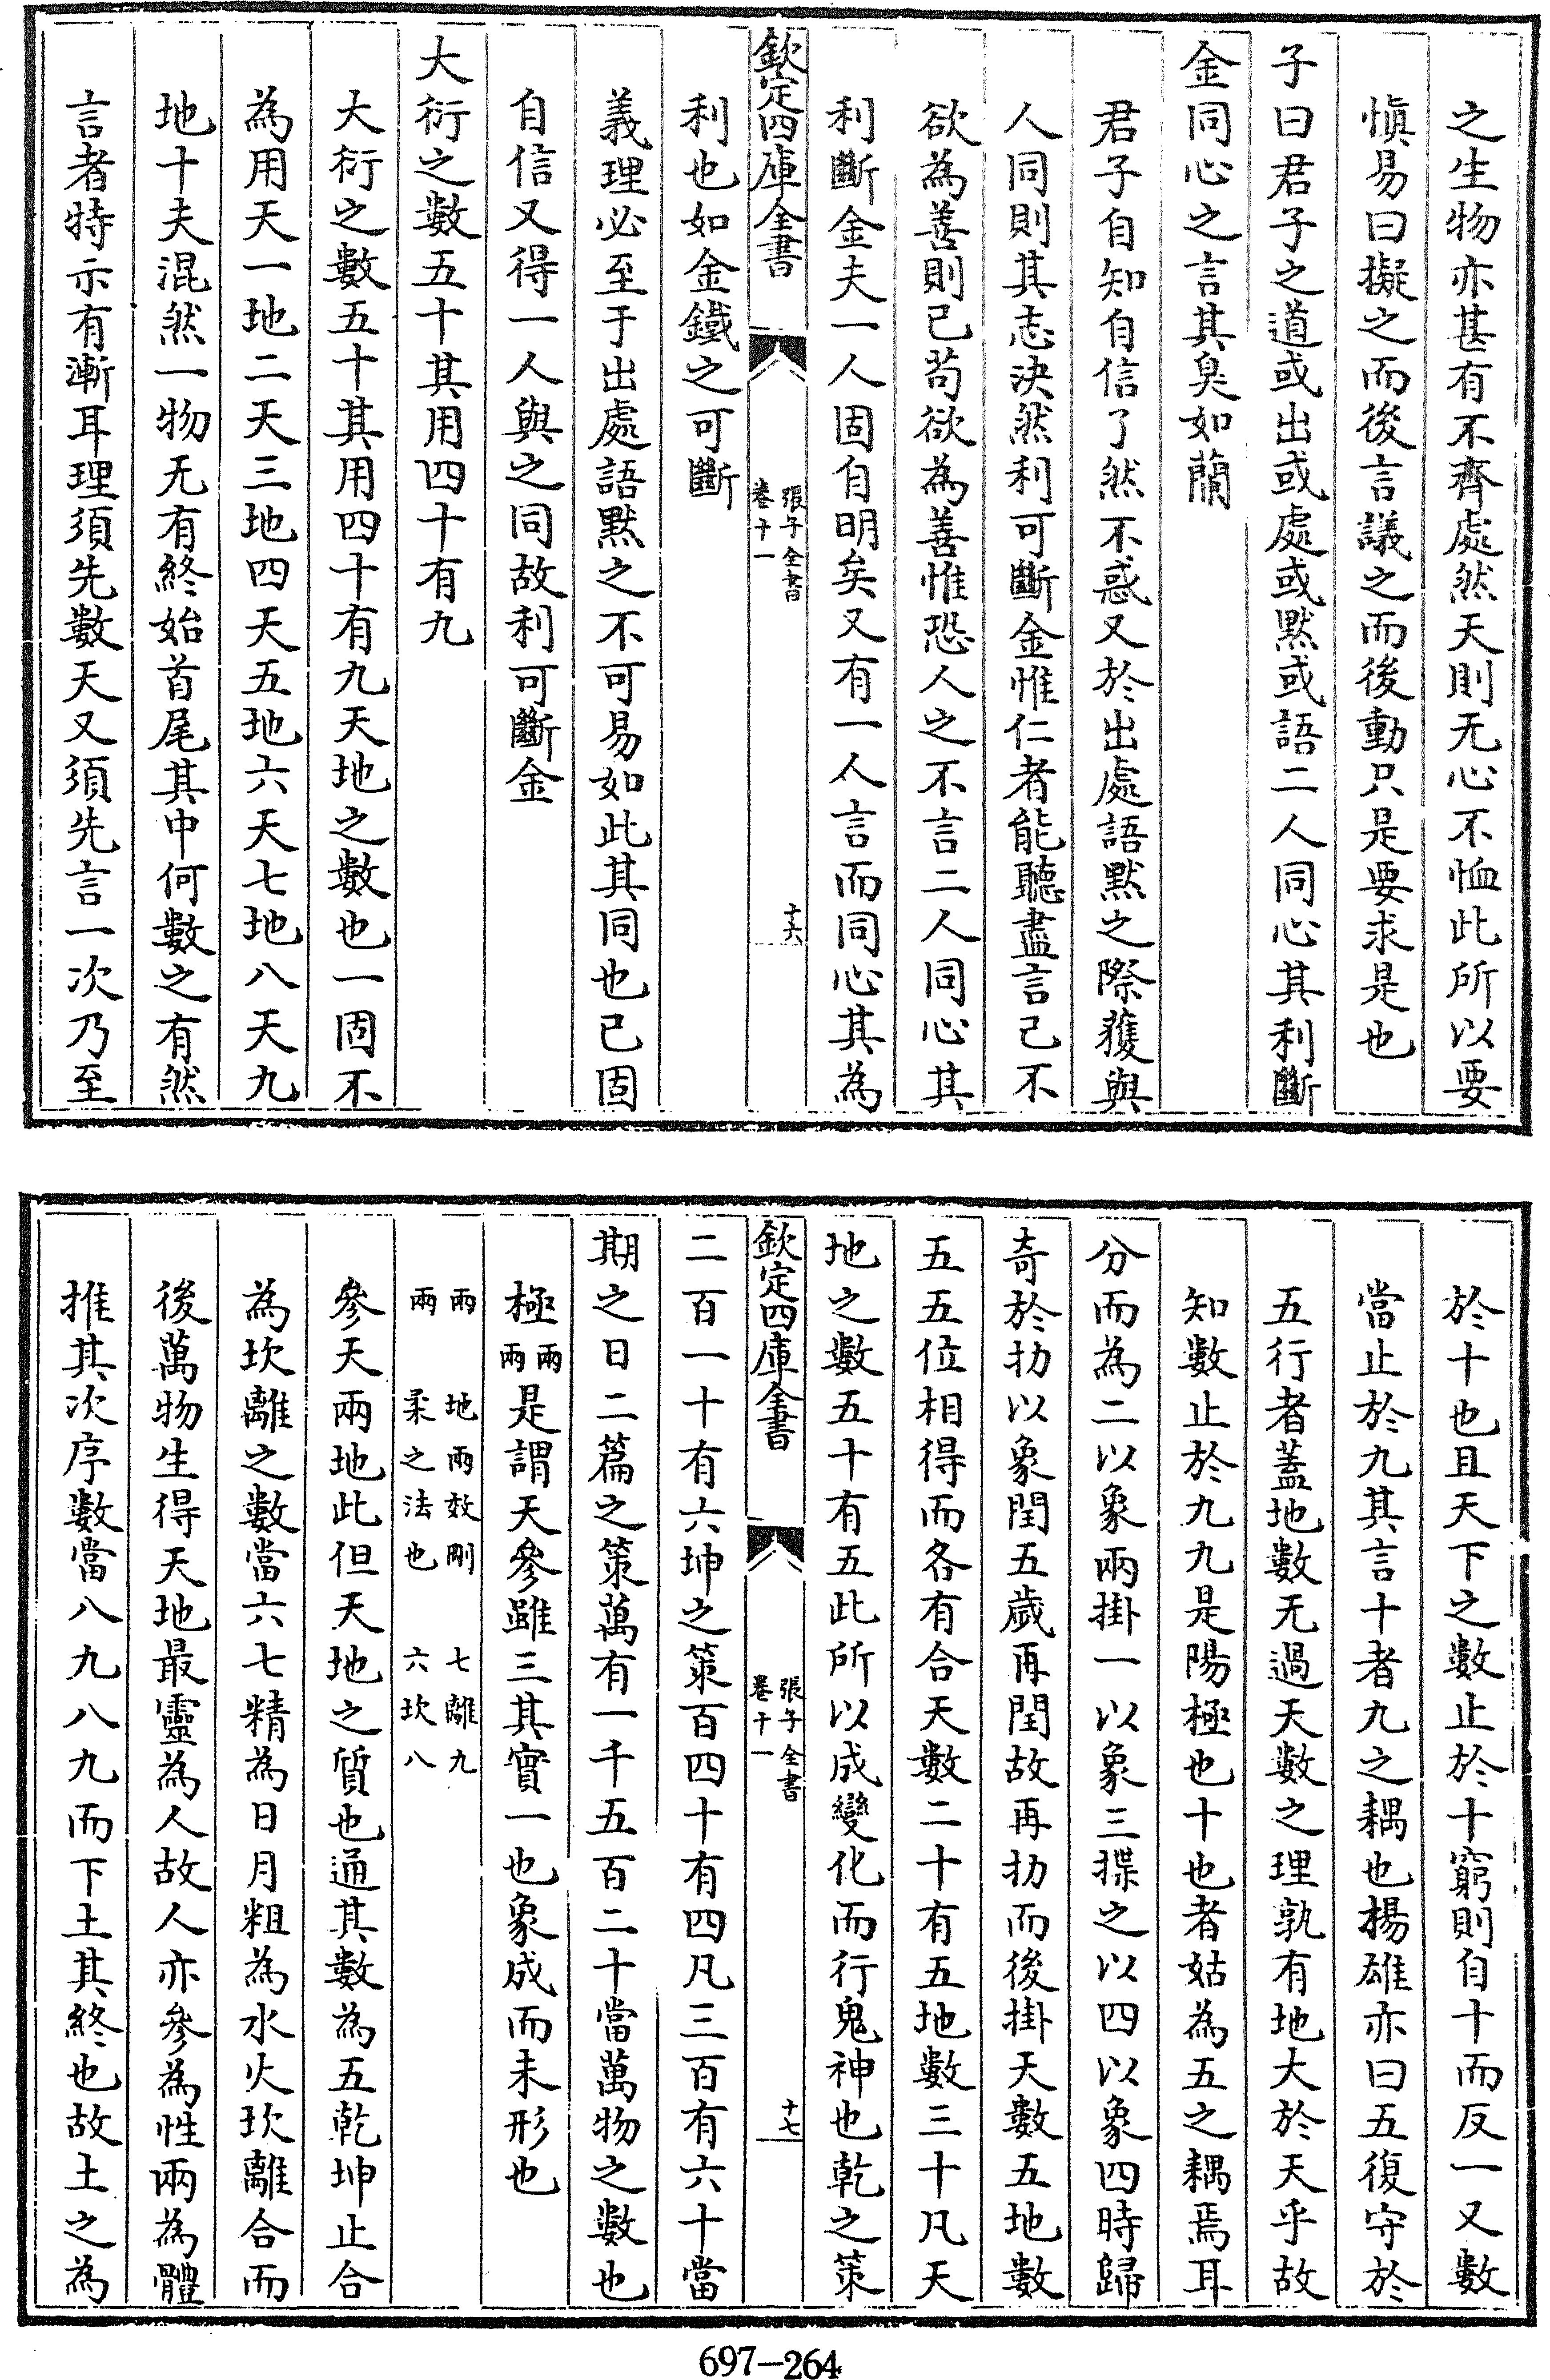 之生物亦甚有不齊處然天則无心不恤此所以要
慎易曰擬之而後言議之而後動只是要求是也
子曰君子之道或出或處或默或語二人同心其利斷
金同心之言其臭如蘭
君子自知自信了然不惑又於出處語默之際獲與
人同則其志決然利可斷金惟仁者能聽盡言己不
欲為善則已苟欲為善惟恐人之不言二人同心其
利斷金夫一人固自明矣又有一人言而同心其為
欽定四庫全書
張子全書
卷十一
十六
利也如金鐵之可斷
義理必至于出處語默之不可易如此其同也已固
自信又得一人與之同故利可斷金
大衍之數五十其用四十有九
大衍之數五十其用四十有九天地之數也一固不
為用天一地二天三地四天五地六天七地八天九
地十夫混然一物无有終始首尾其中何數之有然
言者特示有漸耳理須先數天又須先言一次乃至
於十也且天下之數止於十窮則自十而反一又數
當止於九其言十者九之耦也楊雄亦曰五復守於
五行者蓋地數无過天數之理孰有地大於天乎故
知數止於九九是陽極也十也者姑為五之耦焉耳
分而為二以象兩掛一以象三揲之以四以象四時歸
奇於扐以象閏五歲再閏故再扐而後掛天數五地數
五五位相得而各有合天數二十有五地數三十凡天
地之數五十有五此所以成變化而行鬼神也乾之策
欽定四庫全書
張子全書
卷十一
十七
二百一十有六坤之策百四十有四凡三百有六十當
期之日二篇之策萬有一千五百二十當萬物之數也
極兩兩是謂天參雖三其實一也象成而未形也
兩兩 地兩效剛柔之法也 七離九六坎八
參天兩地此但天地之質也通其數為五乾坤止合
為坎離之數當六七精為日月粗為水火坎離合而
後萬物生得天地最靈為人故人亦參為性兩為體
推其次序數當八九八九而下土其終也故土之為
697-264